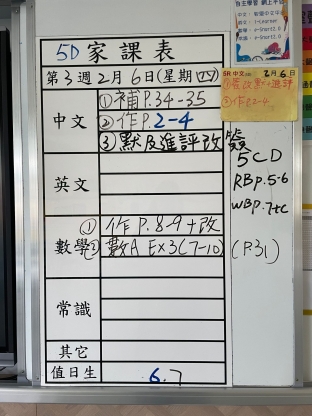 自主學習 網上平台
5D 家課表
第3週2月6日(星期四)
5R 中文 2月6日
中文
①補P.34-35
②作P.2-4
③默及進評改 簽
②作P.2-4
5CD
RBp.5-6
WBp.7+c
英文
數學
①作 P.8-9+改
②數A Ex3(7-10) (P.31)
常識
其它
值日生
6.7